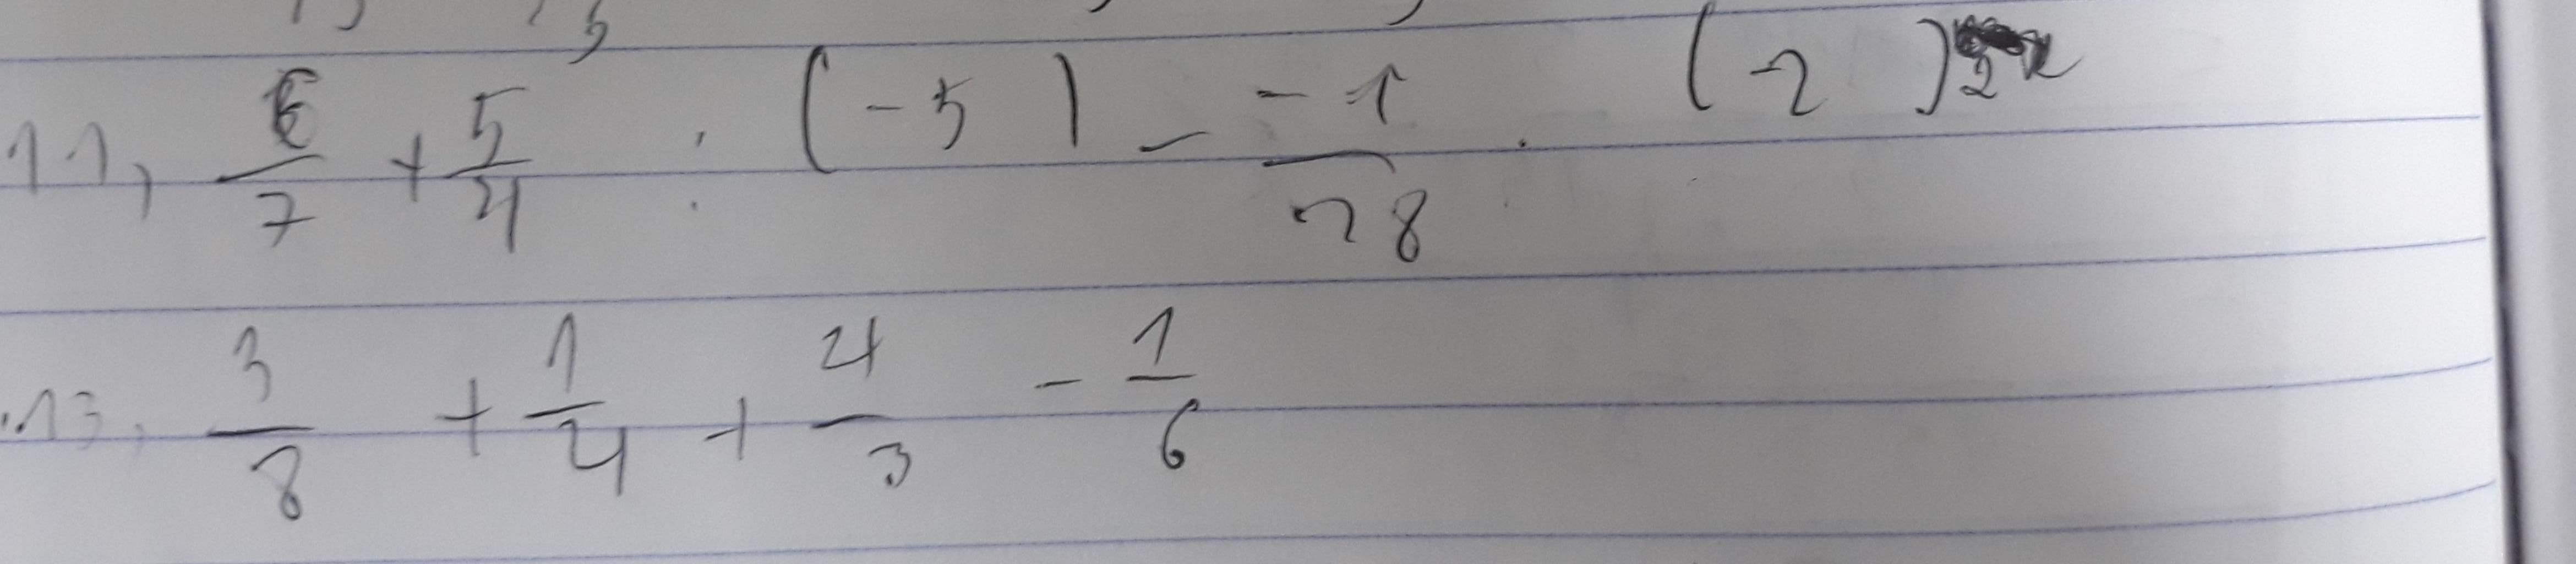 11, 6/7 + 5/4 : (-5) - -1/28 . (-2)^2
13, 3/8 + 1/4 + 4/3 - 1/6